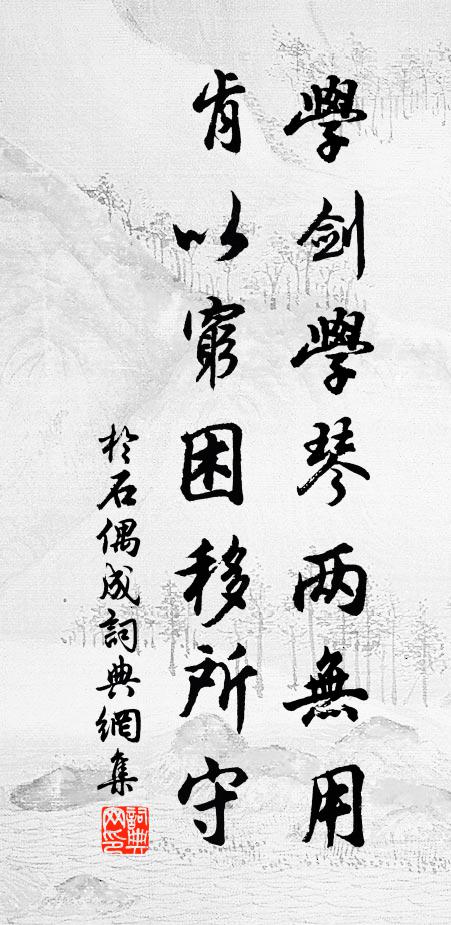 學劍學琴兩無用
肯以窮困移所守
於石偶成詞典網集
詞典網印